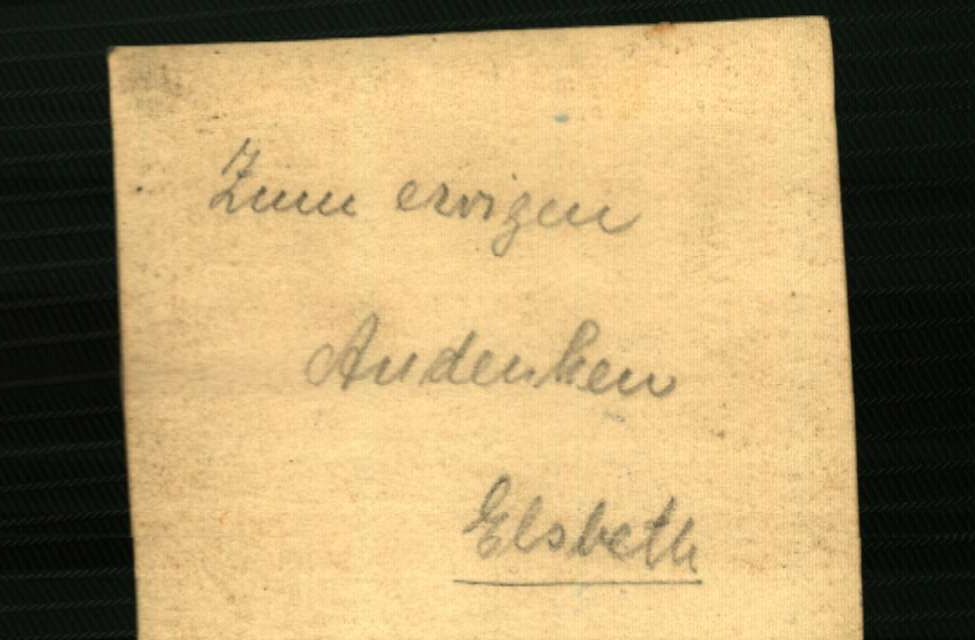 Zum ewigen
Andenken
Elsbeth